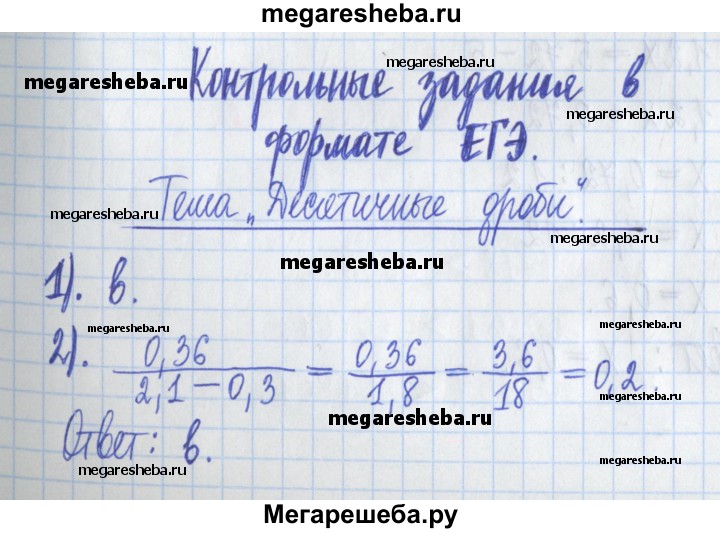 megaresheba.ru
Контрольные задания в
формате ЕГЭ.
Тема „Десятичные дроби“.
1). в.
2). 0,36 / 2,1 – 0,3 = 0,36 / 1,8 = 3,6 / 18 = 0,2.
Ответ: в.
megaresheba.ru
megaresheba.ru
megaresheba.ru
megaresheba.ru
megaresheba.ru
megaresheba.ru
megaresheba.ru
megaresheba.ru
megaresheba.ru
megaresheba.ru
megaresheba.ru
megaresheba.ru
Мегарешеба.ру